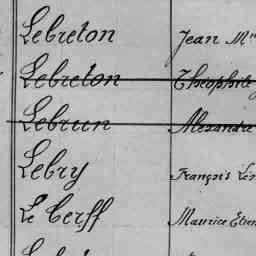 Lebreton Jean M
Lebreton Théophile
Lebrun Alexandre
Lebry François
Le Cerff Maurice Etien